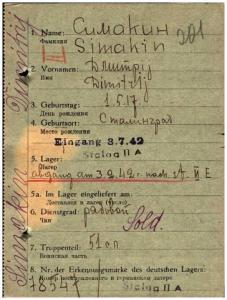 1. Name: Симакин
Фамилия
Simakin
201
2. Vornamen: Дмитрий
Имя
Dimitrij
3. Geburtstag: 1.5.17
День рождения
4. Geburtsort: Сталинград
Место рождения
Eingang 3.7.42
Stalag II A
5. Lager:
Лагерь
abgang am 3.9.42 nach II E
5a. Im Lager eingeliefert am:
Доставлен в лагерь (число)
6. Dienstgrad: рядовой
Чин
Sold.
7. Truppenteil: 51 сп
Воинская часть
8. Nr. der Erkennungsmarke des deutschen Lagers:
Stalag II A
Simakin Dimitrij